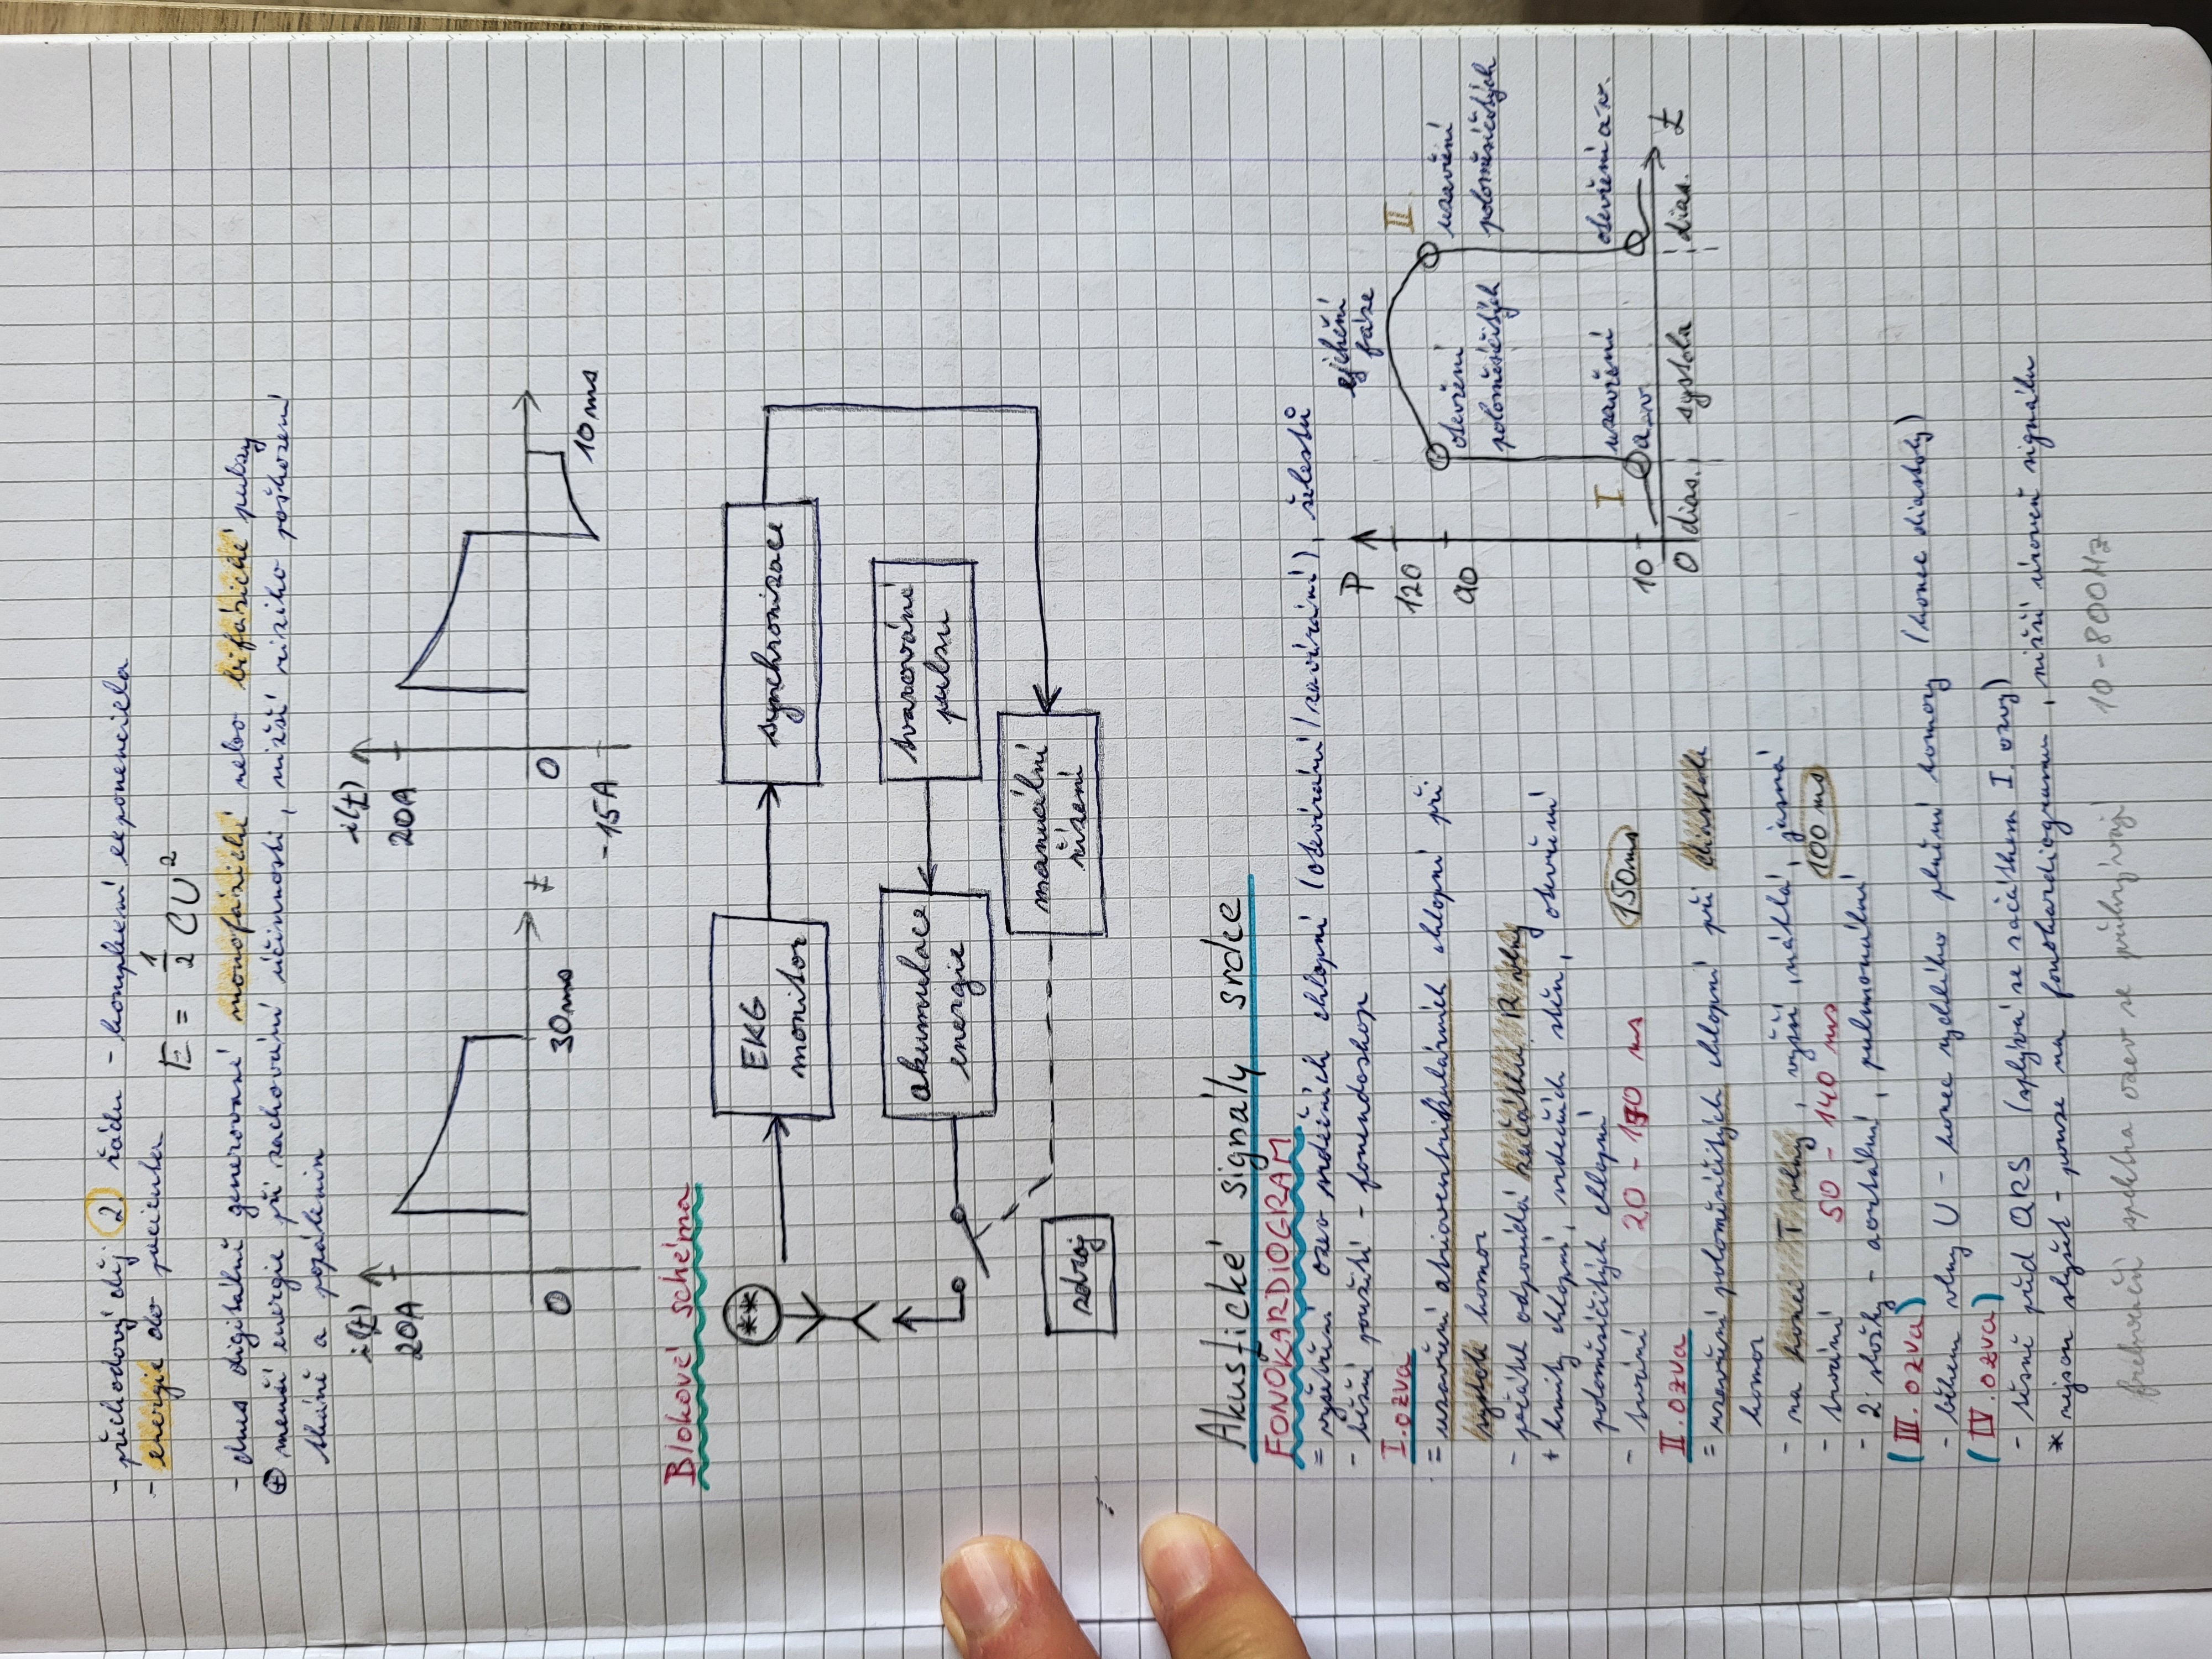 - přechodový děj 2. řádu - komplexní exponenciela
- energie do pacienta
E = 1/2 CU²
- dnes digitálně generované monofázické nebo bifázické pulzy
⊕ menší energie při zachování účinnosti, nižší riziko poškození
tkáně a popálenin
i(t)
20A
0
30ms
t
i(t)
20A
0
-15A
10ms
Blokové schéma
EKG
monitor
synchronizace
akumulace
energie
tvarování
pulsu
manuální
řízení
zdroj
Akustické signály srdce
FONOKARDIOGRAM
= vyšetření ozev srdečních chlopní (otevírání/zavírání), šelestů
- běžní použití - fonendoskop
I. ozva
= uzavření atrioventrikulárních chlopní při
systole komor
- počátek odpovídá začátku R vlny
+ kmity chlopní, srdečních stěn, otevření
poloměsíčitých chlopní
- trvání 20 - 150 ms 150ms
II. ozva
= uzavření poloměsíčitých chlopní při diastole
komor
- na konci T vlny, vyšší, náhlá, jasná
- trvání 50 - 140 ms 100 ms
- 2 složky - aortální, pulmonální
(III. ozva)
- během vlny U - konec rychlého plnění komory (konec diastoly)
(IV. ozva)
- těsně před QRS (splývá se začátkem I. ozvy)
* nejsou slyšet - pouze na fonokardiogramu, nižší úroveň signálu
frekvenční spektra ozev se překrývají 10-800Hz
P
120
90
10
0
ejekční
fáze
II.
otevření
poloměsíčitých
uzavření
poloměsíčitých
I
uzavření
a-v
otevření a-v.
dias. systola dias. t